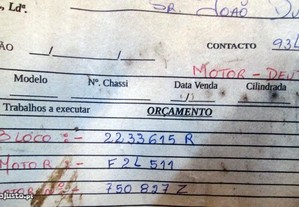 , Ldª. SR JOÃO DU
ÃO / / CONTACTO 934
MOTOR - DEU
Modelo Nº. Chassi Data Venda Cilindrada
/ /
Trabalhos a executar ORÇAMENTO
BLOCO :- 2233615 R
MOTOR :- F2L 511
750 827 Z